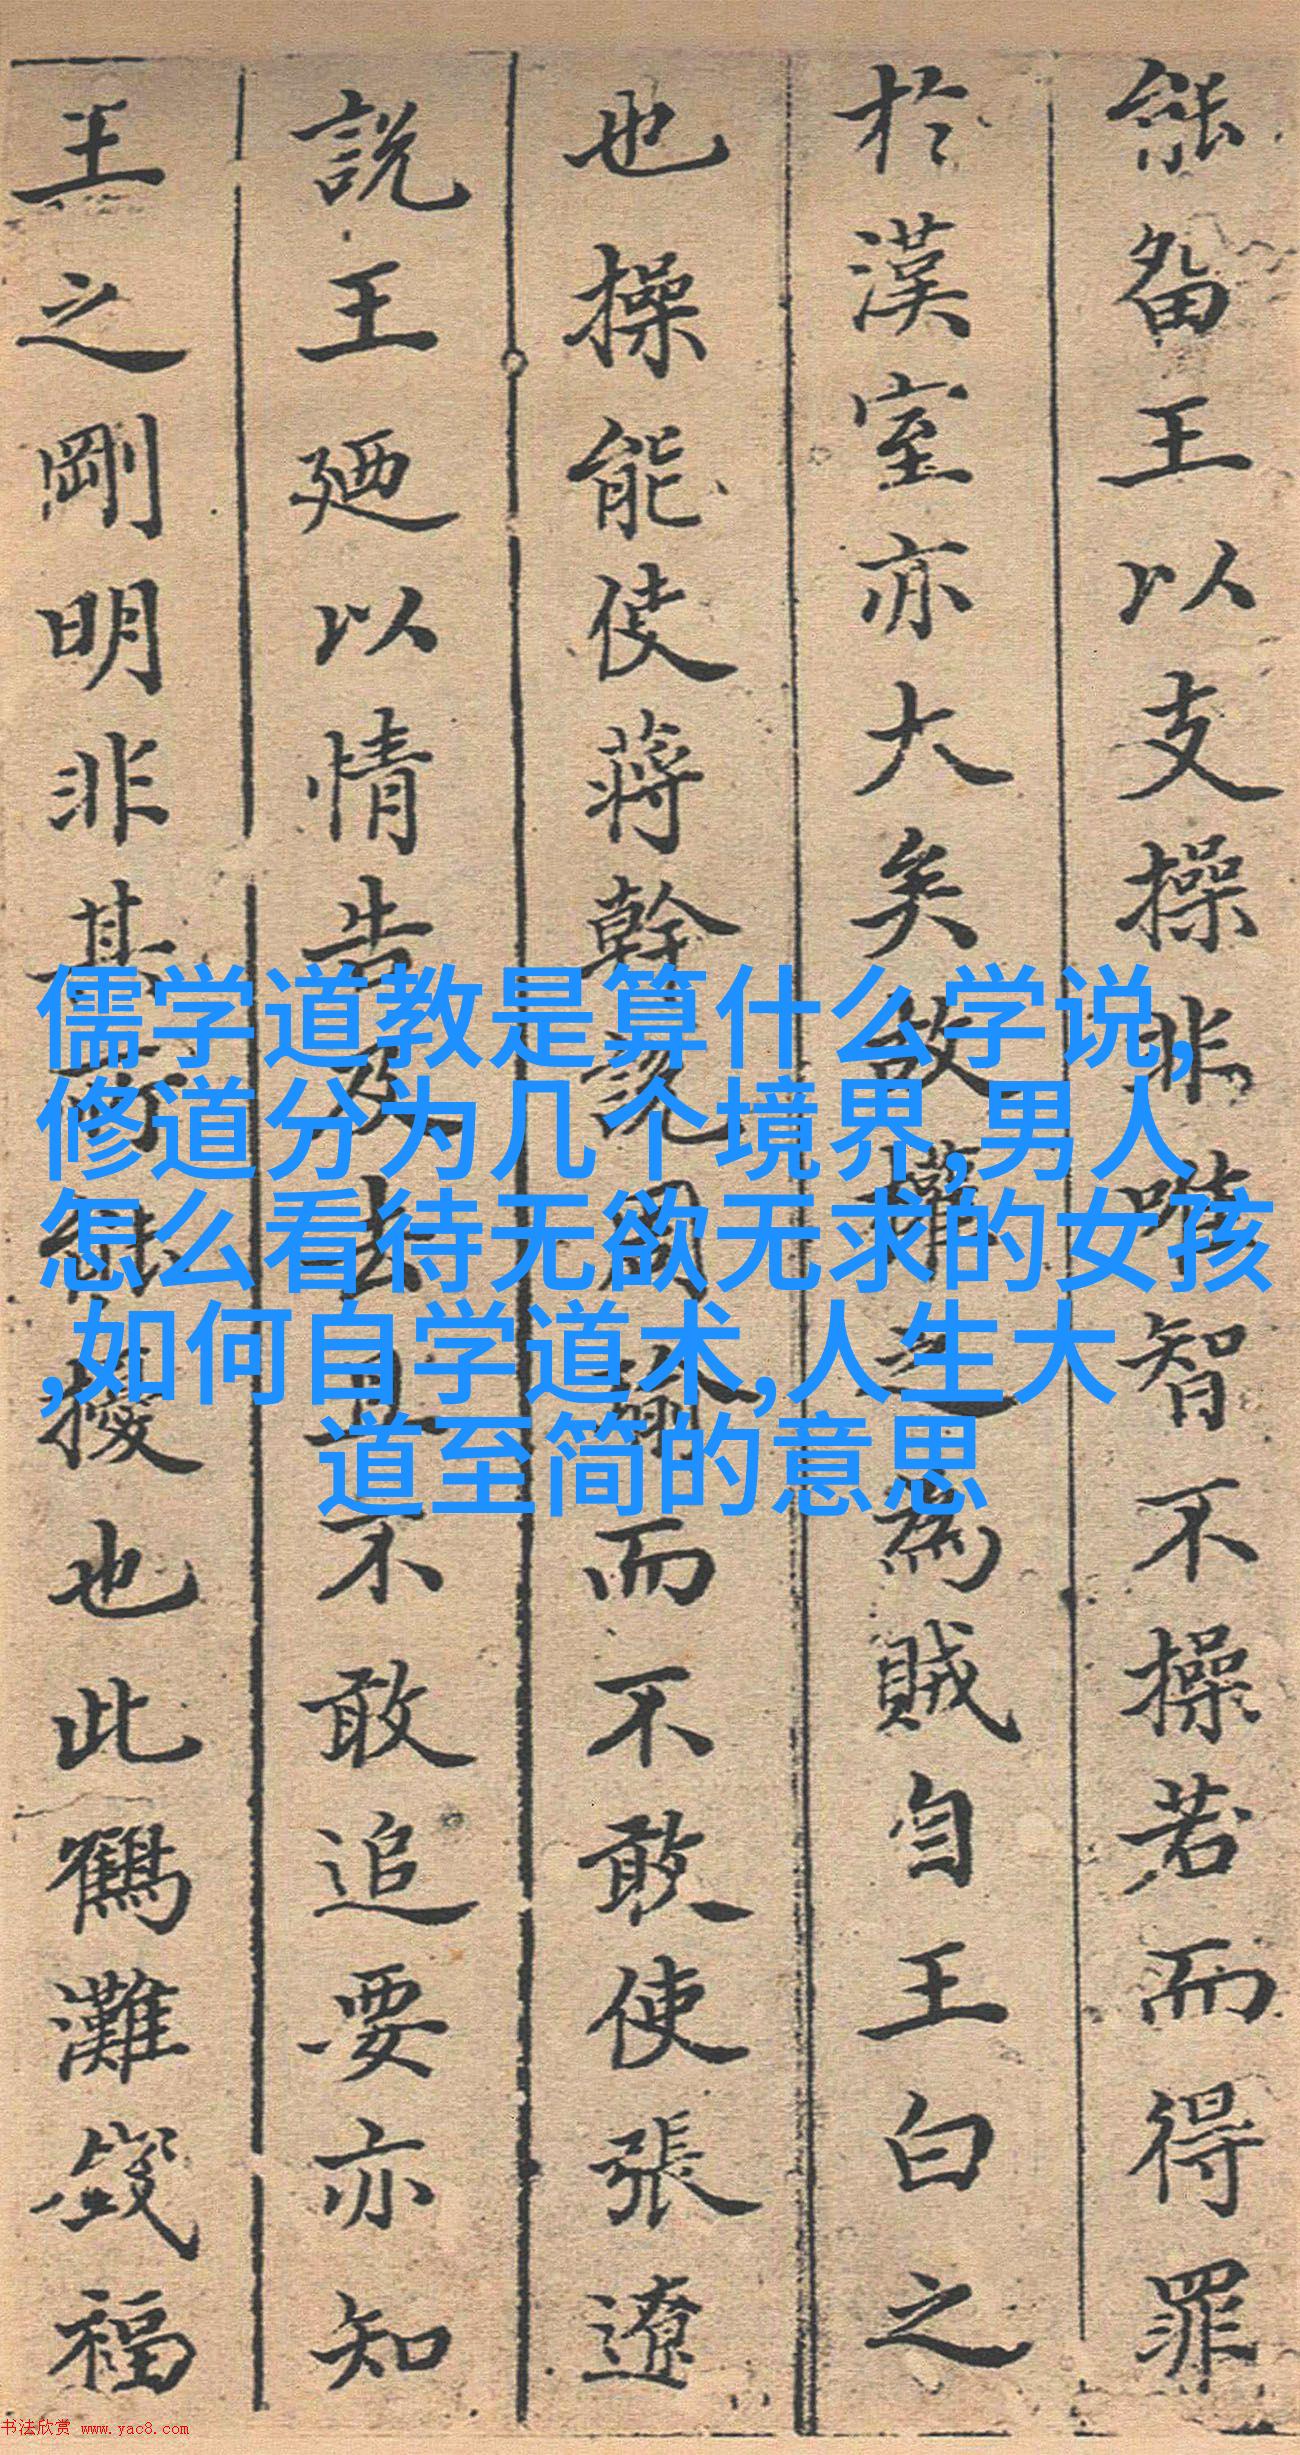 能留王以支操非唯智不操若而得罪
於漢室亦大矣故權之為賊自王白之
也操能使蔣幹說周瑜而不敢使張遼
說王廼以情告及去且不敢追要亦知
王之剛明非其所能撓也此鶴灘
福
儒学道教是算什么学说,
修道分为几个境界,男人
怎么看待无欲无求的女孩
,如何自学道术,人生大
道至简的意思
书法欣赏 www.yac8.com